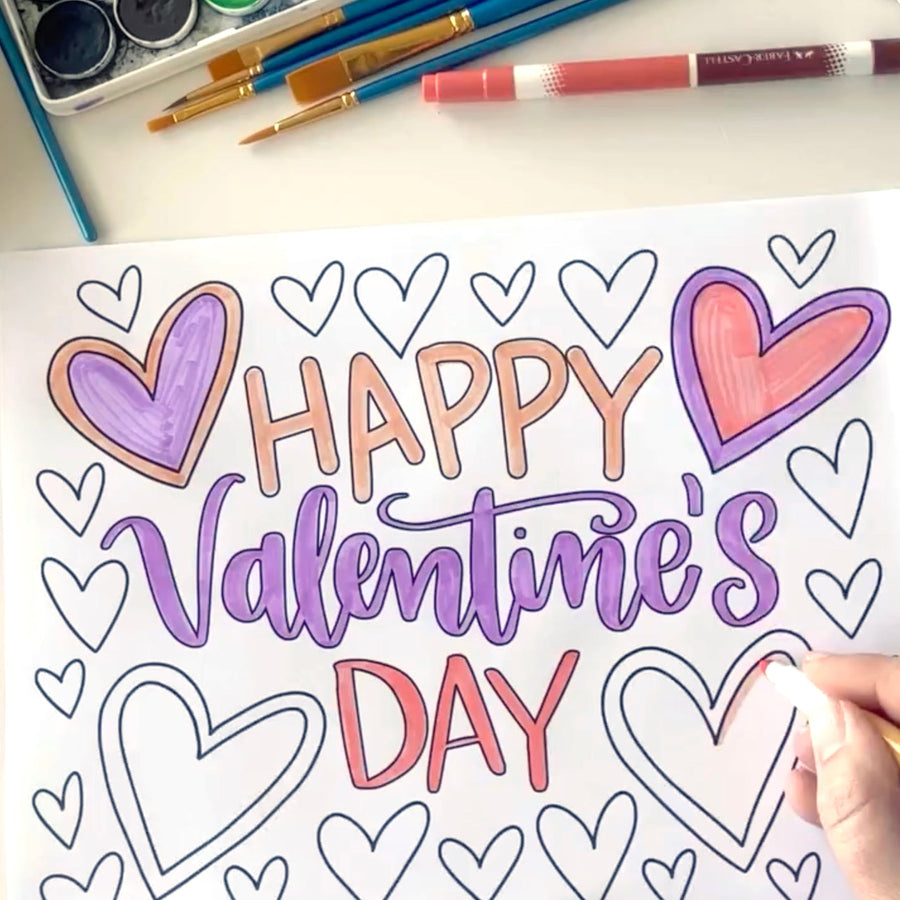 FABER-CASTELL
HAPPY
Valentine's
DAY